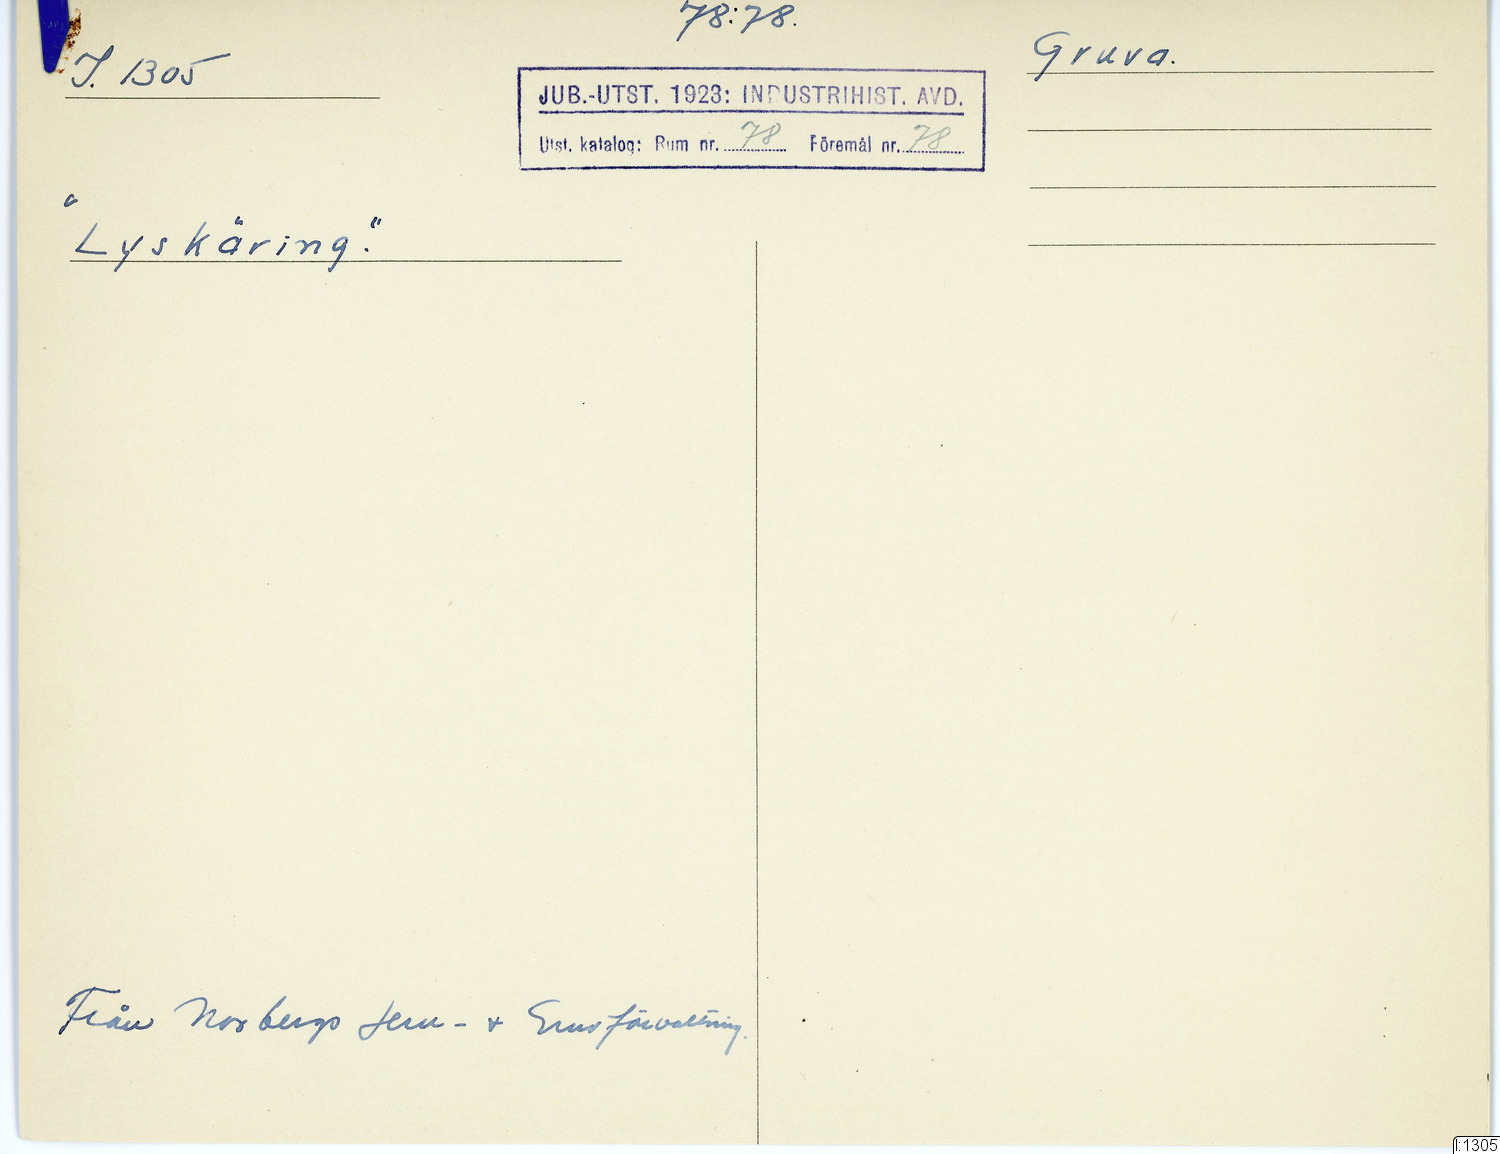 78:78.
I. 1305
Gruva.
JUB.-UTST. 1923: INDUSTRIHIST. AVD.
Utst. katalog: Rum nr. 78 Föremål nr. 78
"Lyskäring".
Från Norbergs Jern- & Gruvförvaltning.
I:1305